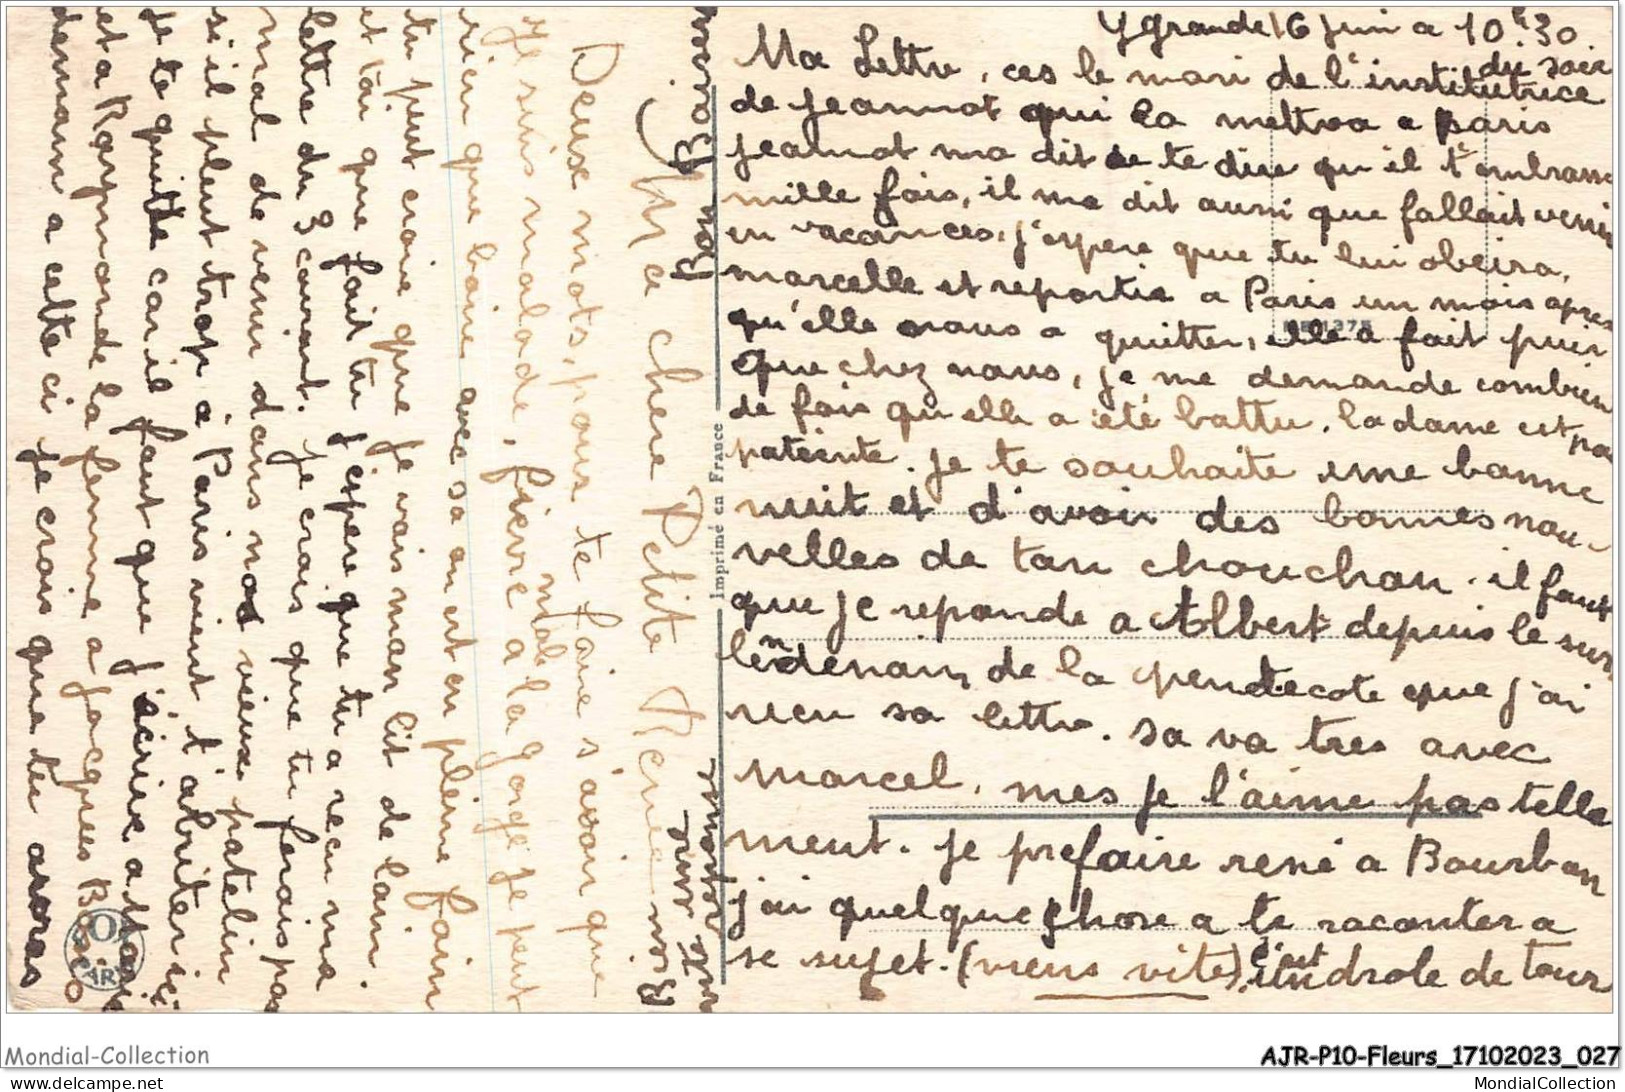 Ygrande 16 juin a 10h30
du soir
Ma Lettre, ces le mari de l'institutrice
de jeannot qui la mettra a paris
jeannot ma dit de te dire qu il t'embrasse
mille fois, il ma dit aussi que fallait venir
en vacances, j'espere que tu lui obeira,
marcelle et repartie a Paris un mois apres
qu'elle nous a quitter, elle a fait puis
que chez nous, je me demande combien
de fois qu elle a été battu. la dame est pas
pateinte. je te souhaite une bonne
nuit et d'avoir des bonnes nou-
velles de ton chouchou. il faut
que je reponde a Albert depuis le sur
lendemain de la pendecote que j'ai
recu sa lettre. sa va tres avec
marcel, mes je l'aime pas telle
ment. je prefaire rené a Bourbon
j'ai quelque chose a te raconter a
se sujet. (viens vite) c'est un drole de tour
Imprimé en France
Ma chere Petite Renée
Deux mots, pour te faire s'avoir que
je suis malade, fievre mal a la gorge je peut
rien que boire avec sa on est en pleine foin
tu peut croire que je vois mon lit de loin.
et toi que fait tu j'espere que tu a recu ma
lettre du 3 courant. je crois que tu ferais pas
mal de venir dans nos vieux patelin
si il pleut trop a Paris vient t'abriter ici
je te quitte car il faut que j'écrive a
et a Raymonde la femme a Jacques
demain a cette ci je crois que tu auras
Bon Baiser
Mondial-Collection
AJR-P10-Fleurs_17102023_027
MondialCollection
delcampe.net